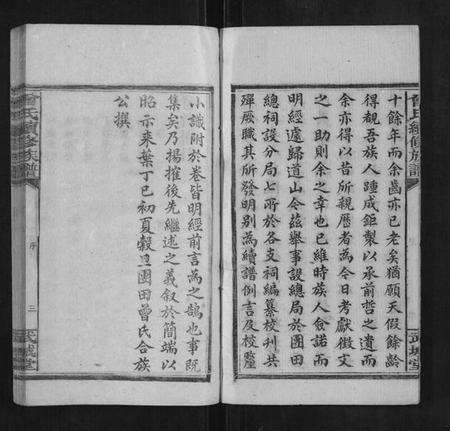 曾氏續修族譜
武城堂
十餘年而余齒亦已老矣猶願天假餘齡
得覩吾族人踵成鉅製以承前哲之遺而
余亦得以昔所親歷者為今日考獻徵文
之一助則余之幸也已維時族人僉諾而
明經遽歸道山令茲舉事設總局於團田
總祠設分局七所於各支祠編纂校刊共
殫厥職其所發明別為續譜例言及校讐
小識附於卷皆明經前言為之鵠也事既
集矣乃揚搉後先繼述之義叙於簡端以
昭示來葉丁巳初夏穀旦團田曾氏合族
公撰
曾氏續修族譜
序
三
武城堂